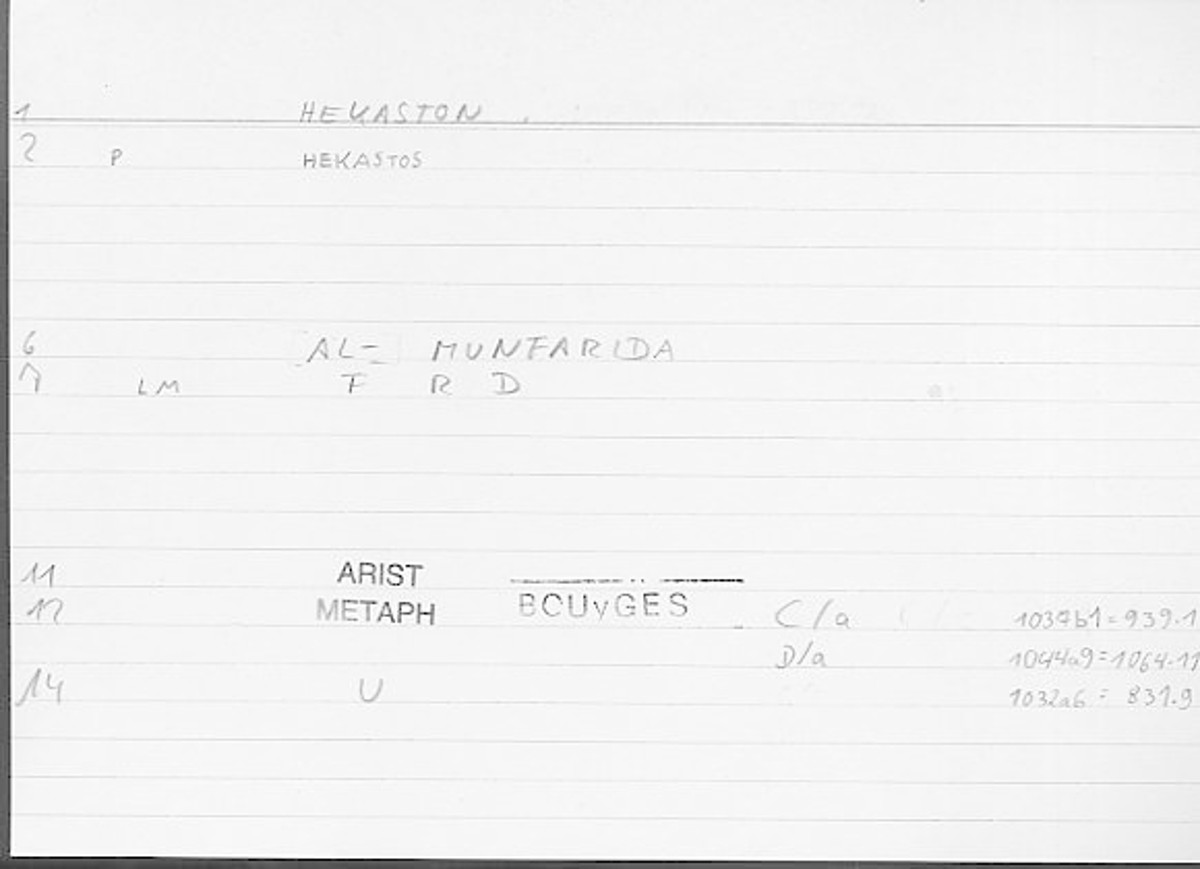 1 HEKASTON .
2 P HEKASTOS
6 AL- MUNFARIDA
7 LM F R D
11 ARIST
12 METAPH BOUyGES C/a 1037b1=939.1
D/a 1044a9=1064.11
14 U 1032a6 = 831.9